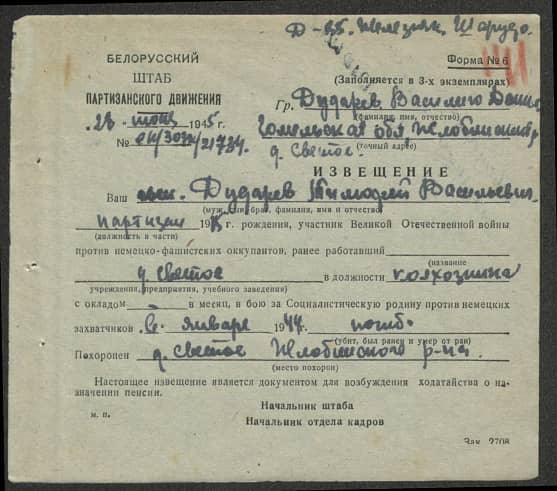 Д-35. Железняк, Шарудо.
БЕЛОРУССКИЙ
ШТАБ
ПАРТИЗАНСКОГО ДВИЖЕНИЯ
Форма № 6
(Заполняется в 3-х экземплярах)
28 июня 1945 г.
Гр. Дударев Василего
(фамилия, имя, отчество)
№ 21784
Гомельская обл Жлобинский р
(точный адрес)
д. Светое.
ИЗВЕЩЕНИЕ
Ваш сын. Дударев Тимофей Васильевич
(муж, сын, брат, фамилия, имя и отчество)
партизан 19 г. рождения, участник Великой Отечественной войны
(должность в части)
против немецко-фашистских оккупантов, ранее работавший
(название
д. Светое в должности колхозника
учреждения, предприятия, учебного заведения)
с окладом в месяц, в бою за Социалистическую родину против немецких
захватчиков в январе 1944 г. погиб.
(убит, был ранен и умер от ран)
Похоронен д. Светое Жлобинского р-на.
(место похорон)
Настоящее извещение является документом для возбуждения ходатайства о на-
значении пенсии.
Начальник штаба
м. п.
Начальник отдела кадров
Зак. 2708